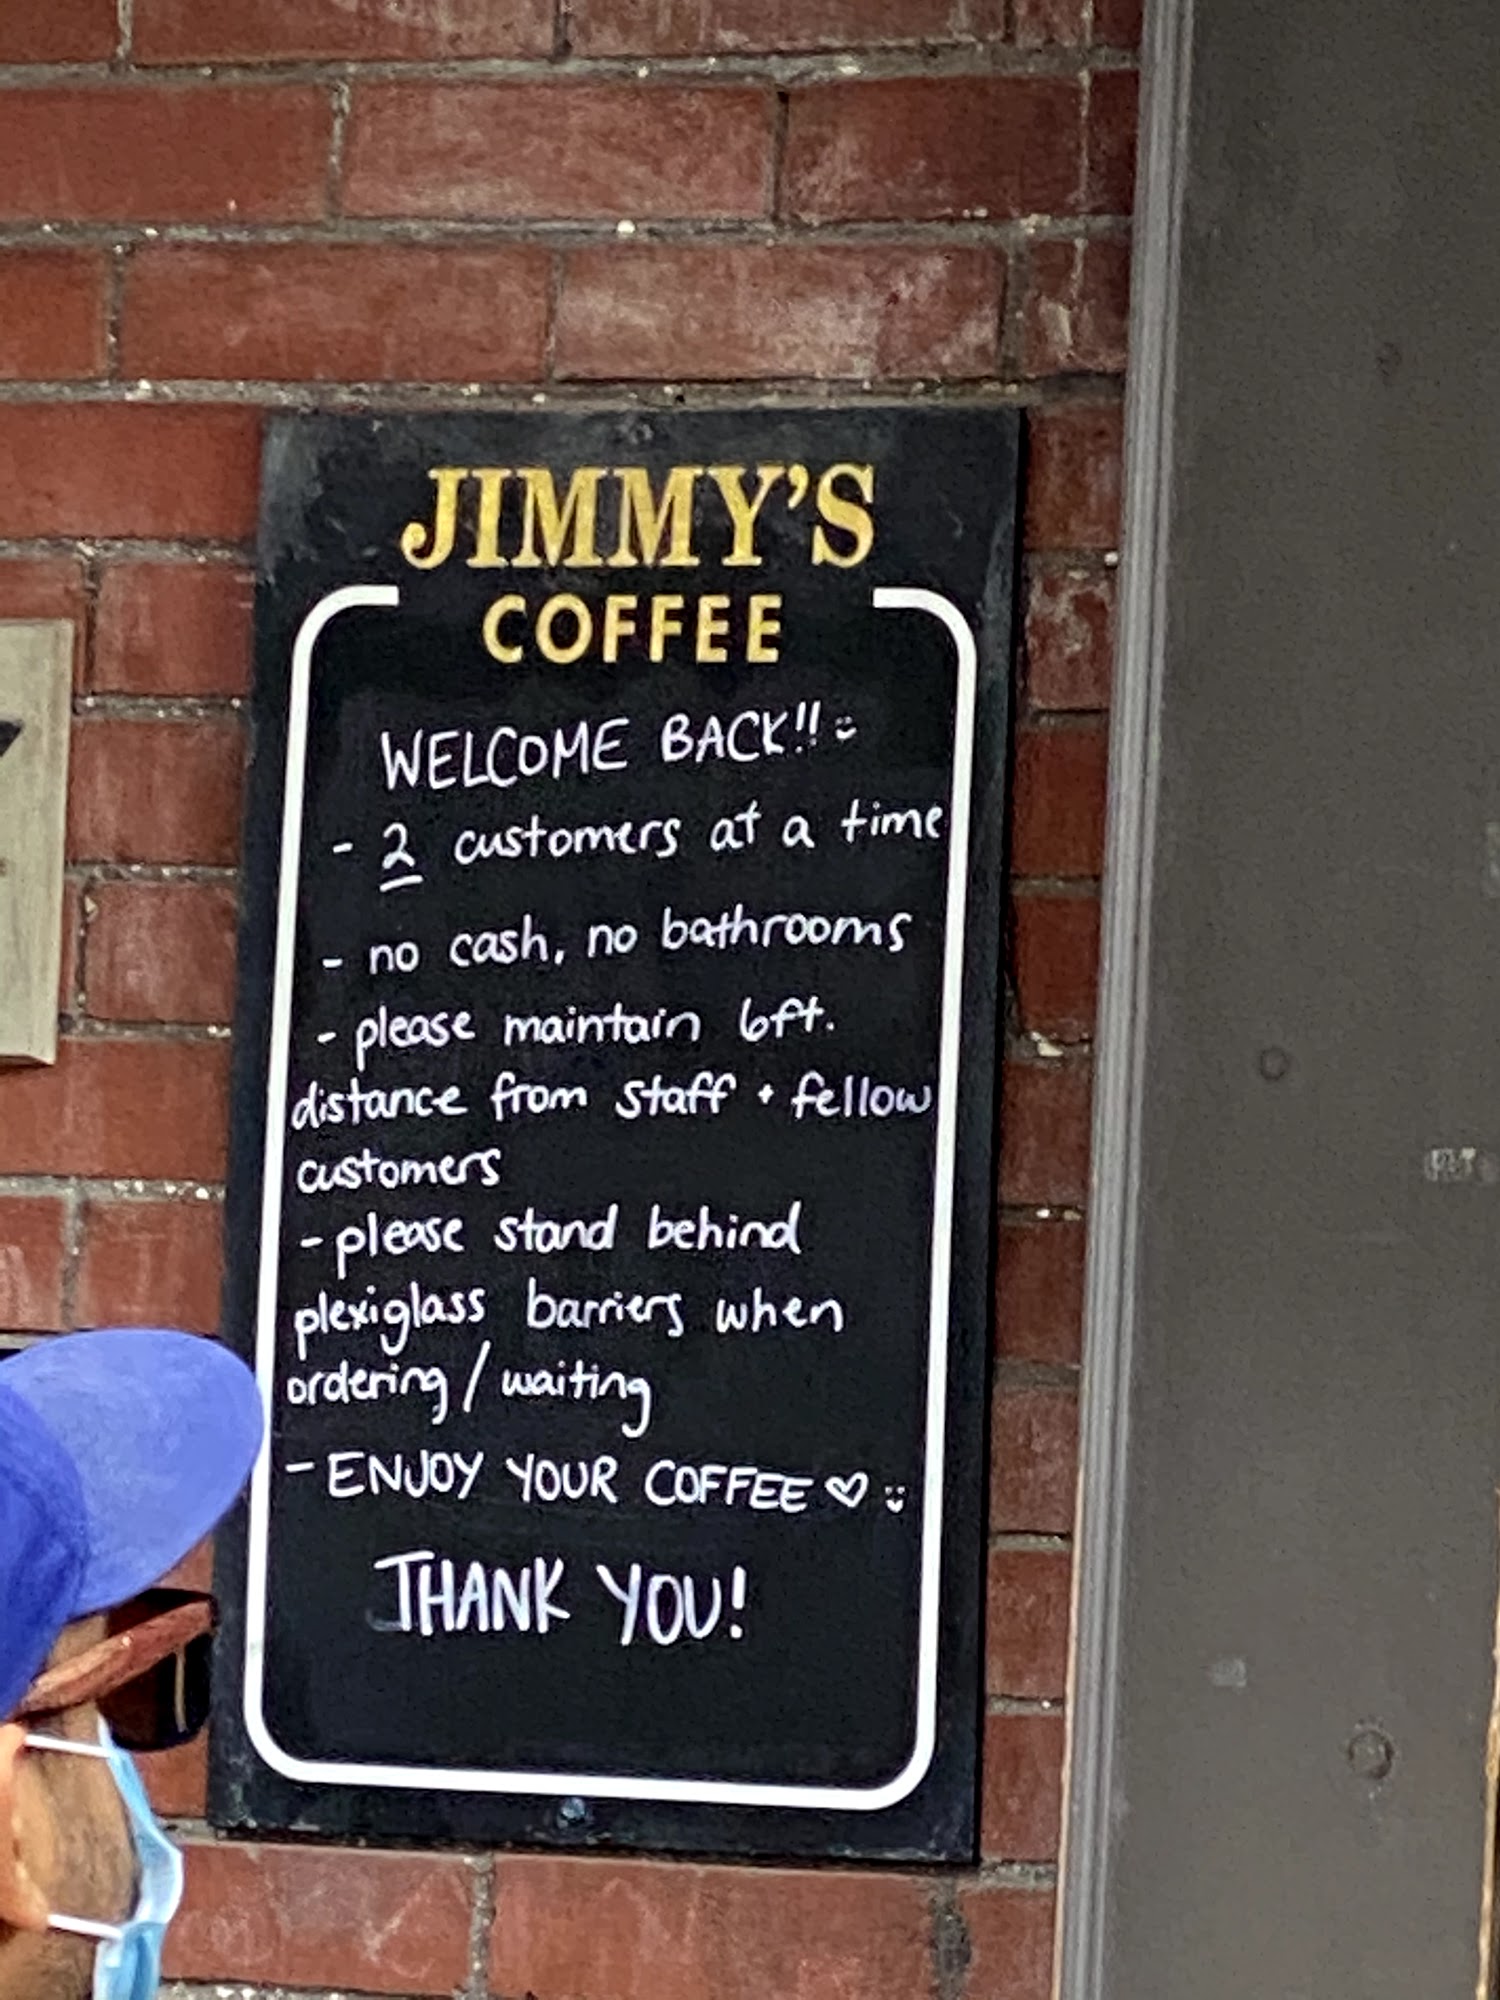 JIMMY'S
COFFEE
WELCOME BACK!!
- 2 customers at a time
- no cash, no bathrooms
- please maintain 6ft.
distance from staff + fellow
customers
- please stand behind
plexiglass barriers when
ordering / waiting
- ENJOY YOUR COFFEE ♡
THANK YOU!